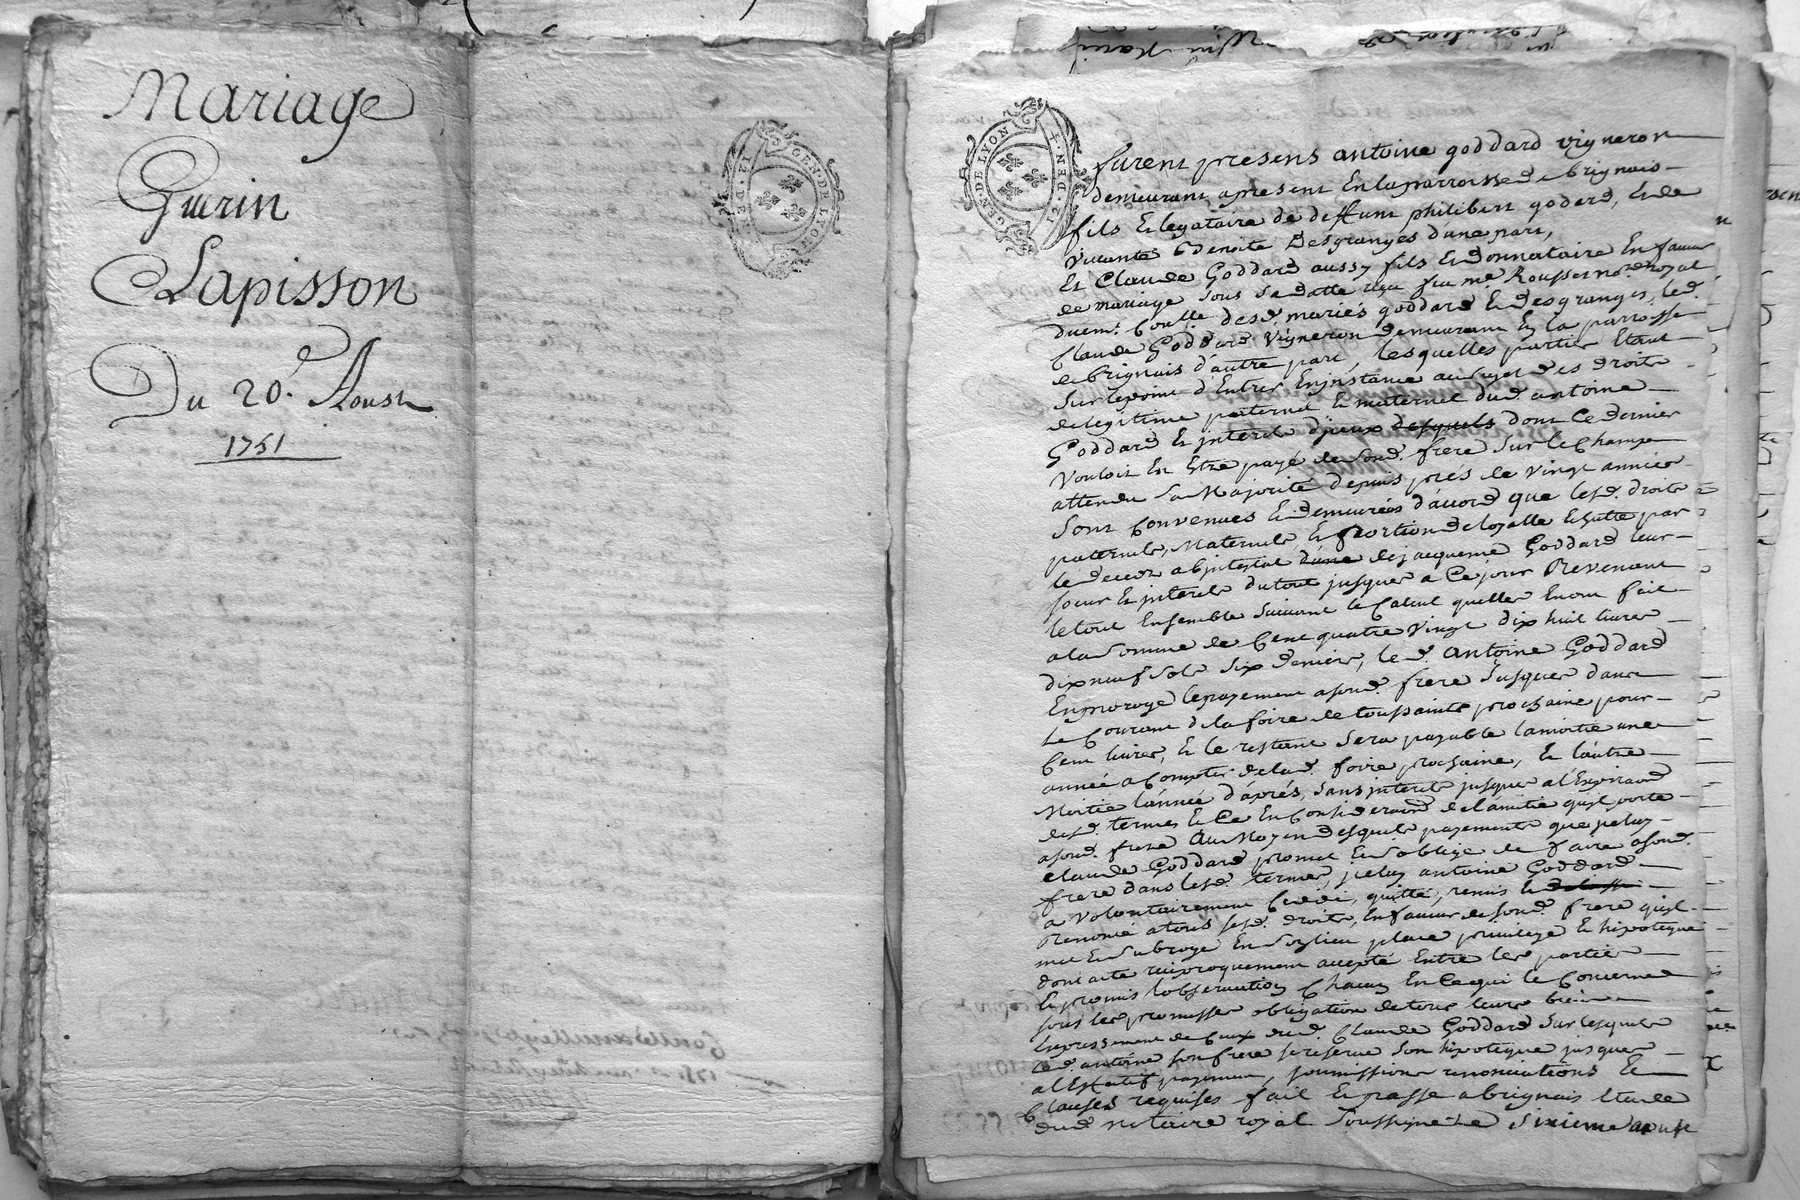 Mariage
Guerin
Lapisson
Du 20e. Aoust
1751
GEN·DE·LYON
12·DEN
GEN·DE·LYON
12·DEN
furent presens antoine goddard vigneron
demeurant apresent En la parroisse de brignais
fils Et legataire de deffunt philibert godard, Et de
vivante Benoite Desgranges d'une part,
Et Claude Goddard aussy fils Et donnataire En faveur
de mariage sous sa datte reçu feu me. Rousset nore. royal
desd. mariés goddard Et desgranges, led.
Claude Goddard vigneron demeurant En la parroisse
de brignais d'autre part, lesquelles parties Etant
sur le point d'Entrer En instance au sujet des droits
de legitime paternel Et maternel dud. antoine
Goddard Et interets d'iceux desquels dont Ce dernier
vouloit En Etre payé de sond. frere sur le Champ
attendu sa Majorité depuis prés de vingt années
sont Convenues Et demeurées d'accord que lesd. droits
paternels, Maternels Et portion de loyalle Echutte par
le deced abintestat d'une de jacqueme Goddard leur
soeur Et interets du tout jusques a Ce jour Revenant
le tout Ensemble suivant le Calcul quelles En ont fait
a la somme de Cent quatre vingt dix huit livres
dix neuf sols six deniers, le d. antoine Goddard
En proroge le payement a sond. frere jusques dans
le Courant de la foire de toussaints prochaine pour
Cent livres, Et le restant sera payable la moitié une
année a Compter de lad. foire prochaine, Et l'autre
Moitié l'année d'aprés, sans interets jusques a l'Expiraôn
desd. termes Et Ce En Consideraôn de l'amitié qu'il porte
a sond. frere Au Moyen desquels payements que iceluy
Claude Goddard promet Et s'oblige de faire a sond.
frere dans lesd. termes, iceluy antoine Goddard
a volontairement Ceddé, quitté, remis Et
Renoncé a tous sesd. droits, En faveur de sond. frere qu'il
met Et subroge En son lieu place privilege Et hipoteque
dont acte reciproquement accepté Entre les parties
Et promis l'observation Chacun En Ce qui le Concerne
sous les promesses obligation de tous leurs biens
Expressement de Ceux dud. Claude Goddard sur lesquels
led. antoine son frere se reserve son hipoteque jusques
a l'Effectif payement, soumissions renonciations Et
Clauses requises fait Et passé a brignais Etude
dud. notaire royal soussigné Le Sixieme aoust